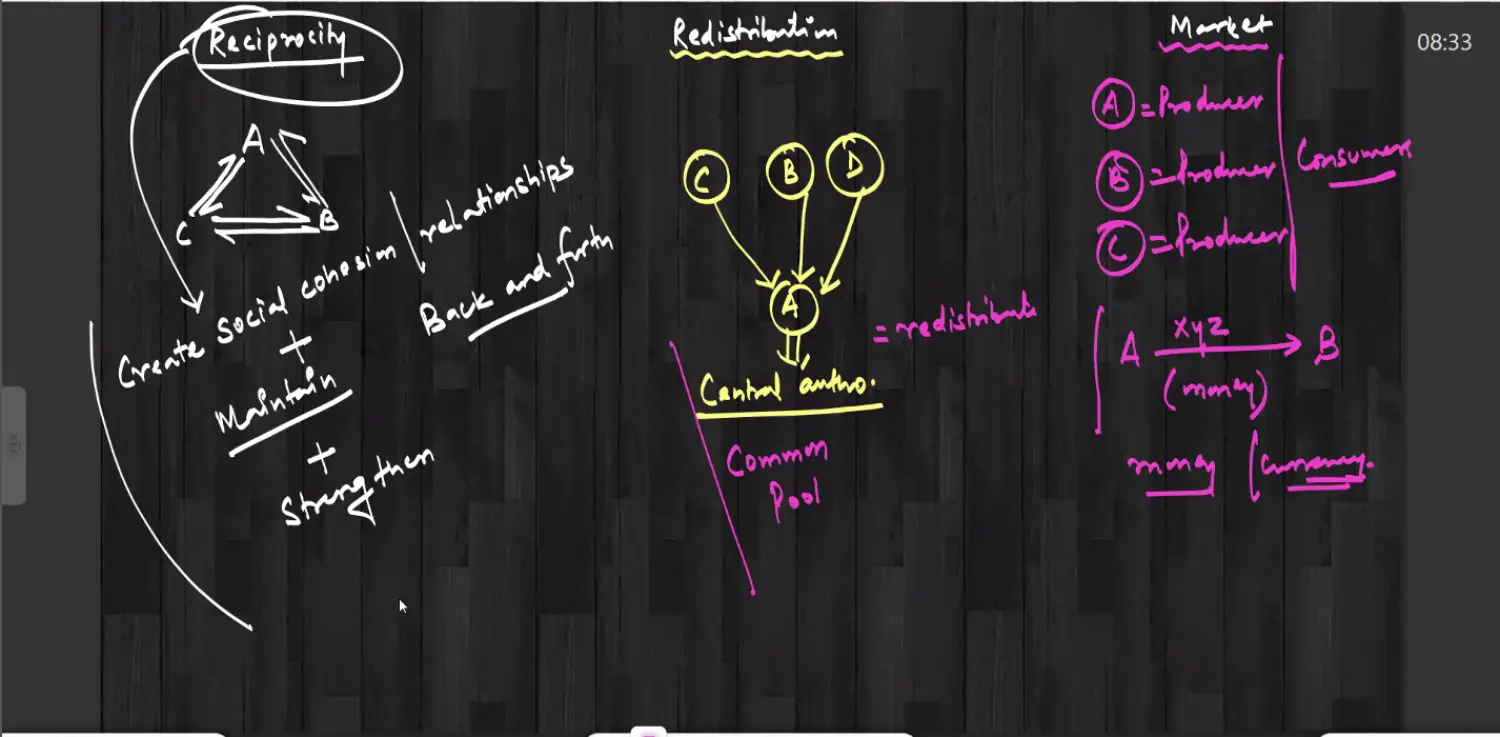 Reciprocity
A
C
B
Create social cohesion / relationships
+
Maintain
+
Strengthen
Back and forth
Redistribution
C
B
D
A
= redistribute
Central autho.
Common
Pool
Market
A = Producer
B = Producer
C = Producer
Consumers
A xyz B
(money)
money (currency.
08:33